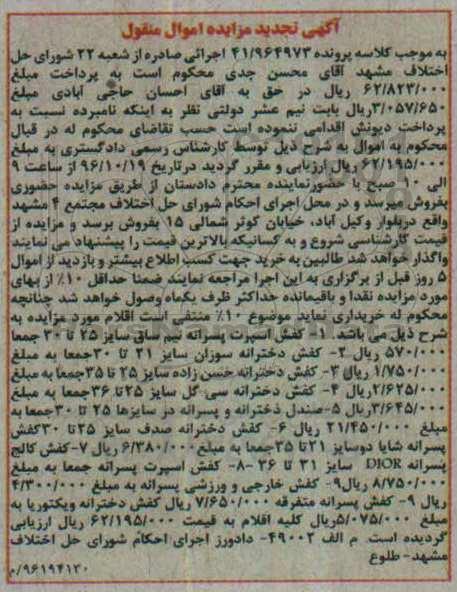 آگهی تجدید مزایده اموال منقول
به موجب کلاسه پرونده ۴۱/۹۶۴۹۷۳ اجرائی صادره از شعبه ۲۲ شورای حل
اختلاف مشهد آقای محسن جدی محکوم است به پرداخت مبلغ
۶۲/۸۲۳/۰۰۰ ریال در حق به آقای احسان حاجی آبادی مبلغ
۳/۰۵۷/۶۵۰ریال بابت نیم عشر دولتی نظر به اینکه نامبرده نسبت به
پرداخت دیونش اقدامی ننموده است حسب تقاضای محکوم له در قبال
محکوم به اموال به شرح ذیل توسط کارشناس رسمی دادگستری به مبلغ
۶۲/۱۹۵/۰۰۰ ریال ارزیابی و مقرر گردید درتاریخ ۹۶/۱۰/۱۹ از ساعت ۹
الی ۱۰ صبح با حضورنماینده محترم دادستان از طریق مزایده حضوری
بفروش میرسد و در محل اجرای احکام شورای حل اختلاف مجتمع ۴ مشهد
واقع دربلوار وکیل آباد، خیابان کوثر شمالی ۱۵ بفروش برسد و مزایده از
قیمت کارشناسی شروع و به کسانیکه بالاترین قیمت را پیشنهاد می نمایند
واگذار خواهد شد طالبین به خرید جهت کسب اطلاع بیشتر و بازدید از اموال
۵ روز قبل از برگزاری به این اجرا مراجعه نمایند ضمنا حداقل ۱۰٪ از بهای
مورد مزایده نقدا و باقیمانده حداکثر ظرف یکماه وصول خواهد شد چنانچه
محکوم له خریداری نماید موضوع ۱۰٪ منتفی است اقلام مورد مزایده به
شرح ذیل می باشد ۱- کفش اسپرت پسرانه نیم ساق سایز ۲۵ تا ۳۰ جمعا
۵۷۰/۰۰۰ ریال ۲- کفش دخترانه سوزان سایز ۲۱ تا ۳۰جمعا به مبلغ
۱/۷۵۰/۰۰۰ ریال ۳- کفش دخترانه حسن زاده سایز ۲۵ تا ۳۵جمعا به مبلغ
۲/۶۲۵/۰۰۰ریال ۴- کفش دخترانه سی گل سایز ۲۵تا ۳۶جمعا به مبلغ
۳/۶۴۵/۰۰۰ریال ۵-صندل دخترانه و پسرانه در سایزها ۲۵ تا ۳۰جمعا به
مبلغ ۲۱/۴۵۰/۰۰۰ ریال ۶- کفش دخترانه صدف سایز ۲۵ تا ۳۰کفش
پسرانه شایا دوسایز ۲۱تا ۳۵جمعا به مبلغ۶/۳۸۰/۰۰۰ ریال ۷-کفش کالج
پسرانه DIOR سایز ۳۱ تا ۳۶ -۸- کفش اسپرت پسرانه جمعا به مبلغ
۸/۷۵۰/۰۰۰ ریال۹- کفش خارجی و ورزشی پسرانه به مبلغ ۴/۳۰۰/۰۰۰
ریال ۹- کفش پسرانه متفرقه ۷/۶۵۰/۰۰۰ ریال کفش دخترانه ویکتوریا به
مبلغ ۵/۰۷۵/۰۰۰ریال کلیه اقلام به قیمت ۶۲/۱۹۵/۰۰۰ ریال ارزیابی
گردیده است. م الف ۴۹۰۰۲- دادورز اجرای احکام شورای حل اختلاف
مشهد- طلوع
۹۶۱۹۴۱۳۰/م